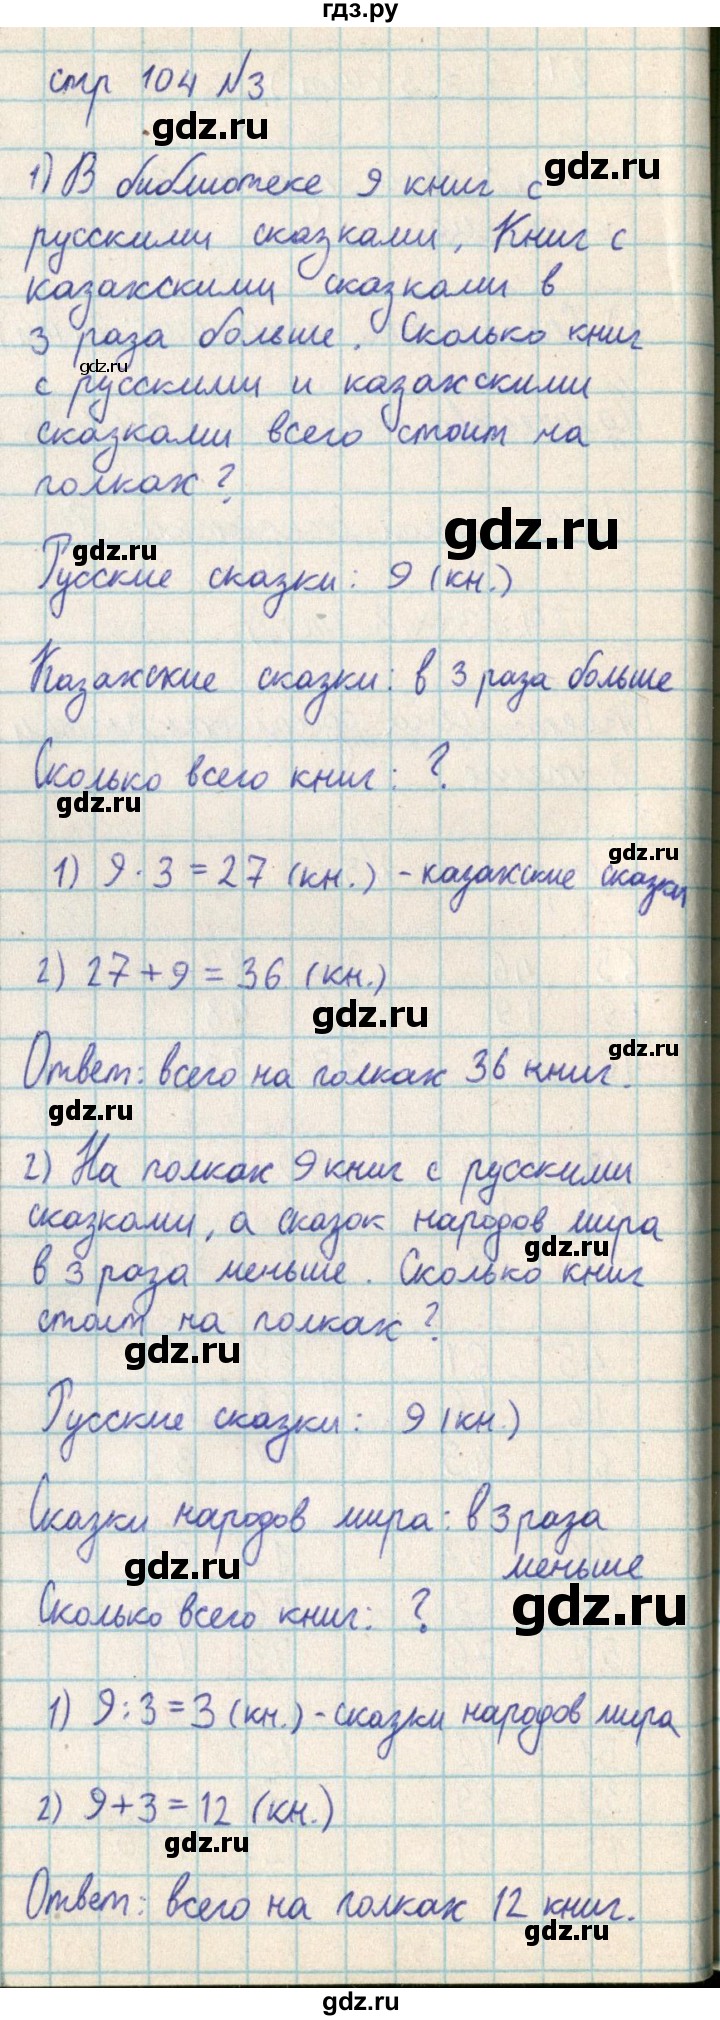 гдз.ру
стр 104 №3
gdz.ru
1) В библиотеке 9 книг с
gdz.ru
русскими сказками, Книг с
казахскими сказками в
3 раза больше. Сколько книг
gdz.ru
с русскими и казахскими
сказками всего стоит на
полках?
gdz.ru
gdz.ru
Русские сказки: 9 (кн.)
Казахские сказки: в 3 раза больше
Сколько всего книг: ?
gdz.ru
gdz.ru
1) 9 · 3 = 27 (кн.) - казахские сказки
2) 27 + 9 = 36 (кн.)
gdz.ru
gdz.ru
Ответ: всего на полках 36 книг.
gdz.ru
2) На полках 9 книг с русскими
сказками, а сказок народов мира
gdz.ru
в 3 раза меньше. Сколько книг
стоит на полках?
gdz.ru
Русские сказки: 9 (кн.)
Сказки народов мира: в 3 раза
меньше
gdz.ru
gdz.ru
Сколько всего книг: ?
1) 9 : 3 = 3 (кн.) - сказки народов мира
2) 9 + 3 = 12 (кн.)
gdz.ru
Ответ: всего на полках 12 книг.
gdz.ru
gdz.ru